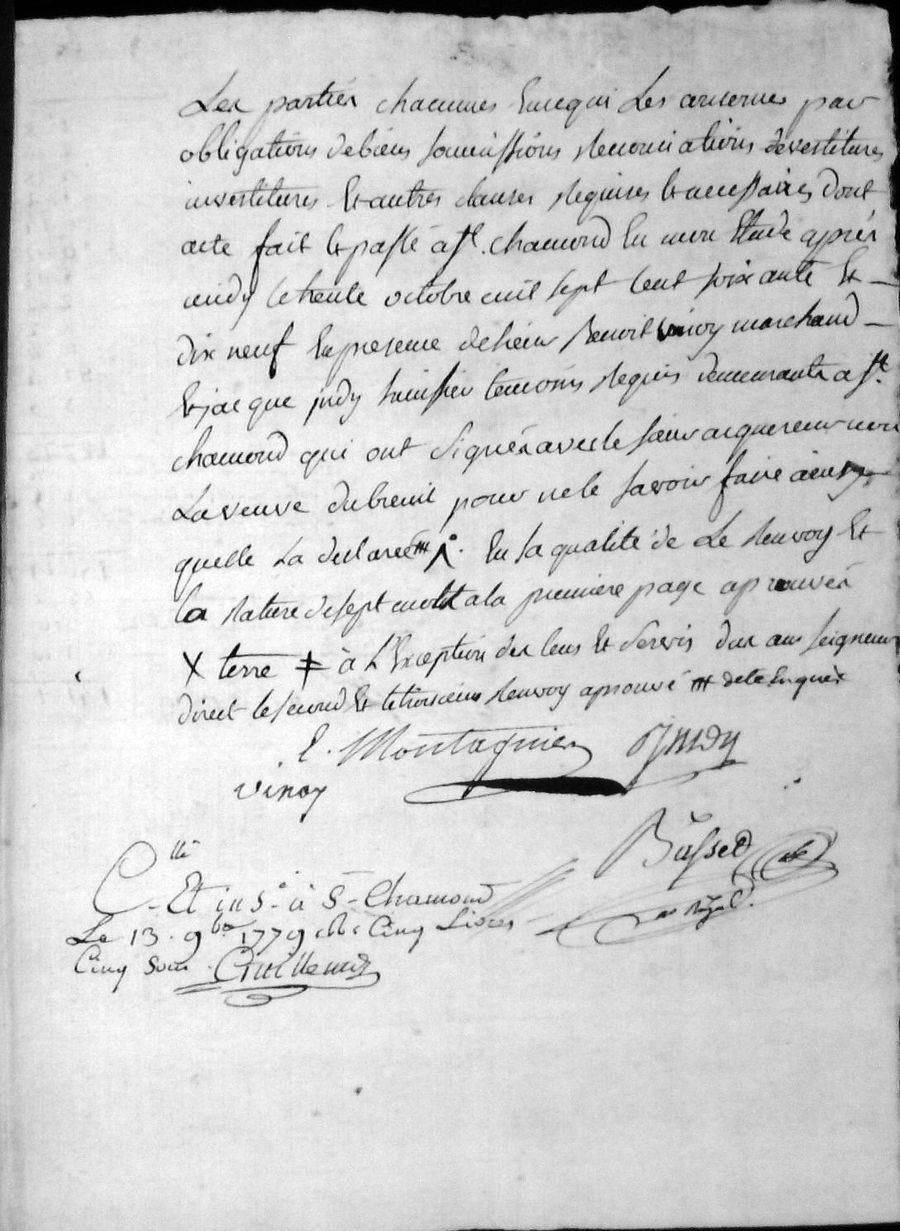 Les parties chacunes En ce qui Les concernes par
obligations de biens soumissions Renonciations devestitures
investitures Et autres clauses Requises Et necessaires Dont
acte fait Et passé a st. chamond En mon Etude après
midy le trente octobre mil sept Cent soixante Et
dix neuf En presence de sieur Benoit vinoy marchand
Et jacque jndy huissier temoins Requis demeurants a st.
chamond qui ont signés avec le sieur acquereur non
La veuve dubreuil pour ne le savoir faire ainsy
quelle La declaré # En sa qualité de Le Renvoy Et
la Rature de sept mots a la premiere page aprouvés
X terre ‡ à L'Exception des Cens Et servis dus au seigneur
direct le second Et le troisieme Renvoy aprouvé # de ce Enquis
E. Montagnier jndy
vinoy
Busset
C.llé
Et ins. à St-Chamond
Le 13. 9bre 1779 Cinq Livres
Cinq Sous
no. Royal.